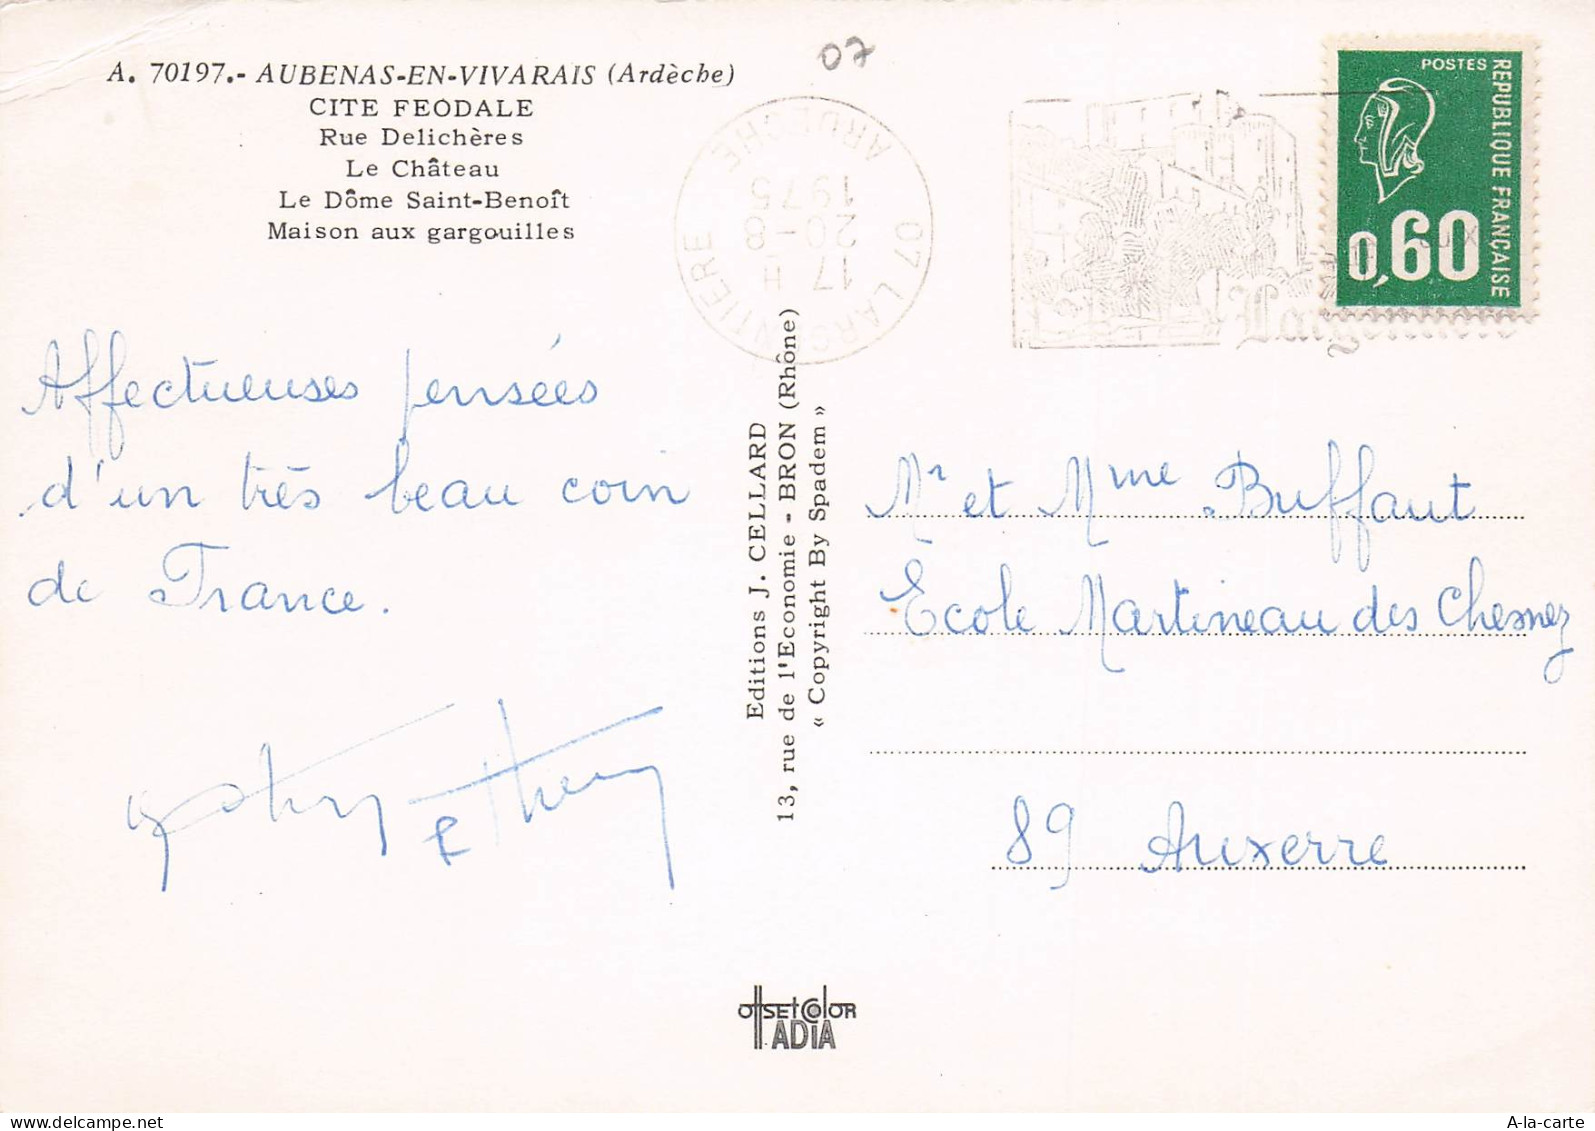 A. 70197.- AUBENAS-EN-VIVARAIS (Ardèche)
CITE FEODALE
Rue Delichères
Le Château
Le Dôme Saint-Benoît
Maison aux gargouilles
07
07 LARGENTIERE
ARDECHE
17 H
20-8
1975
Largentière
POSTES
REPUBLIQUE FRANÇAISE
0,60
Affectueuses pensées
d'un très beau coin
de France.
Editions J. CELLARD
13, rue de l'Economie - BRON (Rhône)
« Copyright By Spadem »
Mr et Mme Buffaut
Ecole Martineau des Chesnez
89 Auxerre
offsetcolor
IADIA
A-la-carte